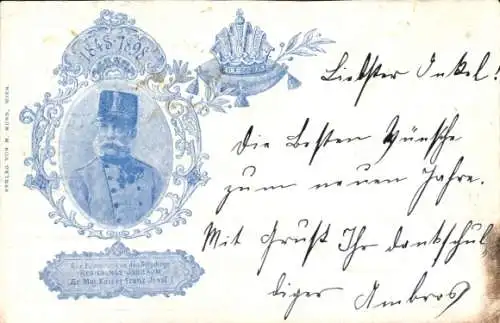 1848-1898
VERLAG VON M. MUNK, WIEN.
Zur Erinnerung an das 50jährige
REGIERUNGS-JUBILÄUM
Sr. Maj. Kaiser Franz Josef I
Liebster Onkel!
Die besten Wünsche
zum neuen Jahre.
Mit Gruß Ihr dankschul
diger Ambros